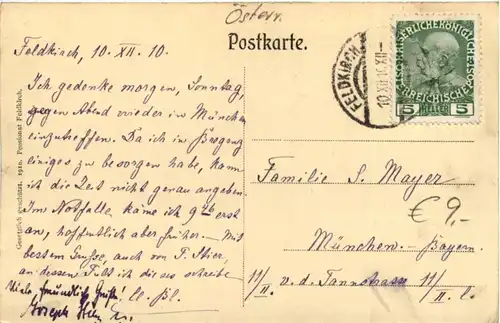 Österr.
Postkarte.
Feldkirch, 10. XII. 10.
Ich gedenke morgen, Sonntag,
gegen Abend wieder in München
einzutreffen. Da ich in Bregenz
einiges zu besorgen habe, kann
ich die Zeit nicht genau angeben.
Im Notfalle käme ich 9 erst
an, hoffentlich aber früher. – Mit
bestem Gruße, auch von P. Stier,
an dessen Pult ich dieses schreibe
Viele freundliche Grüße!
Joseph
Gesetzlich geschützt. 1910. Pensionat Feldkirch.
FELDKIRCH
10 XII 10 XII-
KAISERLICHEKÖNIGLICHE
ÖSTERREICHISCHE
5 HELLER 5
Familie S. Mayer
€ 9,-
München - Bayern
11/II. v. d. Tannstrasse 11/II. l.